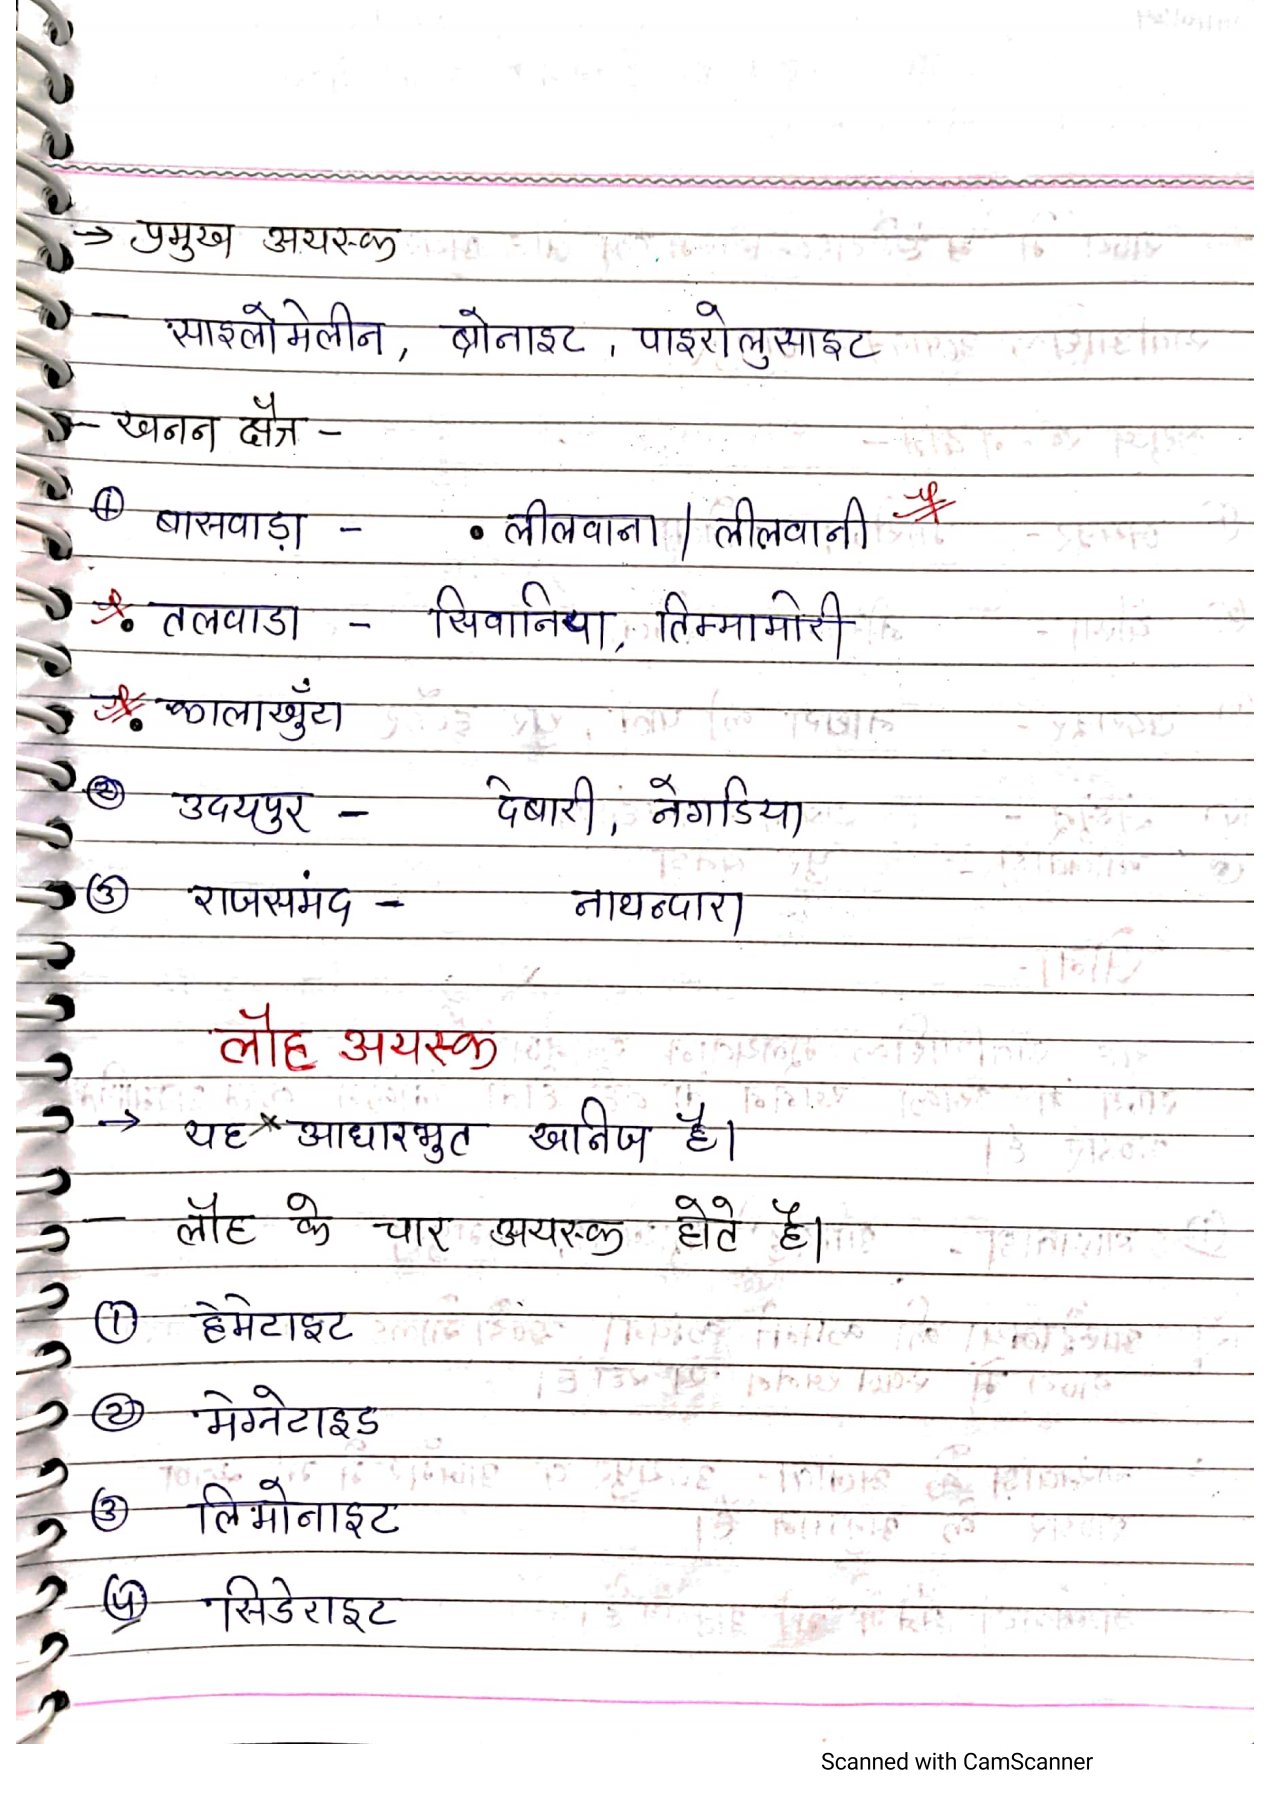 → प्रमुख अयस्क
- साइलोमेलीन, ब्रोनाइट, पाइरोलुसाइट
- खनन क्षैत्र -
① बासवाड़ा - • लीलवाना / लीलवानी
• तलवाडा - सिवानिया, तिम्मामोरी
• कालाखुँटा
② उदयपुर - देबारी, नेगडिया
③ राजसमंद - नाथव्दारा
लौह अयस्क
→ यह * आधारभुत खनिज है।
- लौह के चार अयस्क होते है।
① हेमेटाइट
② मेग्नेटाइड
③ लिमोनाइट
④ सिडेराइट
Scanned with CamScanner